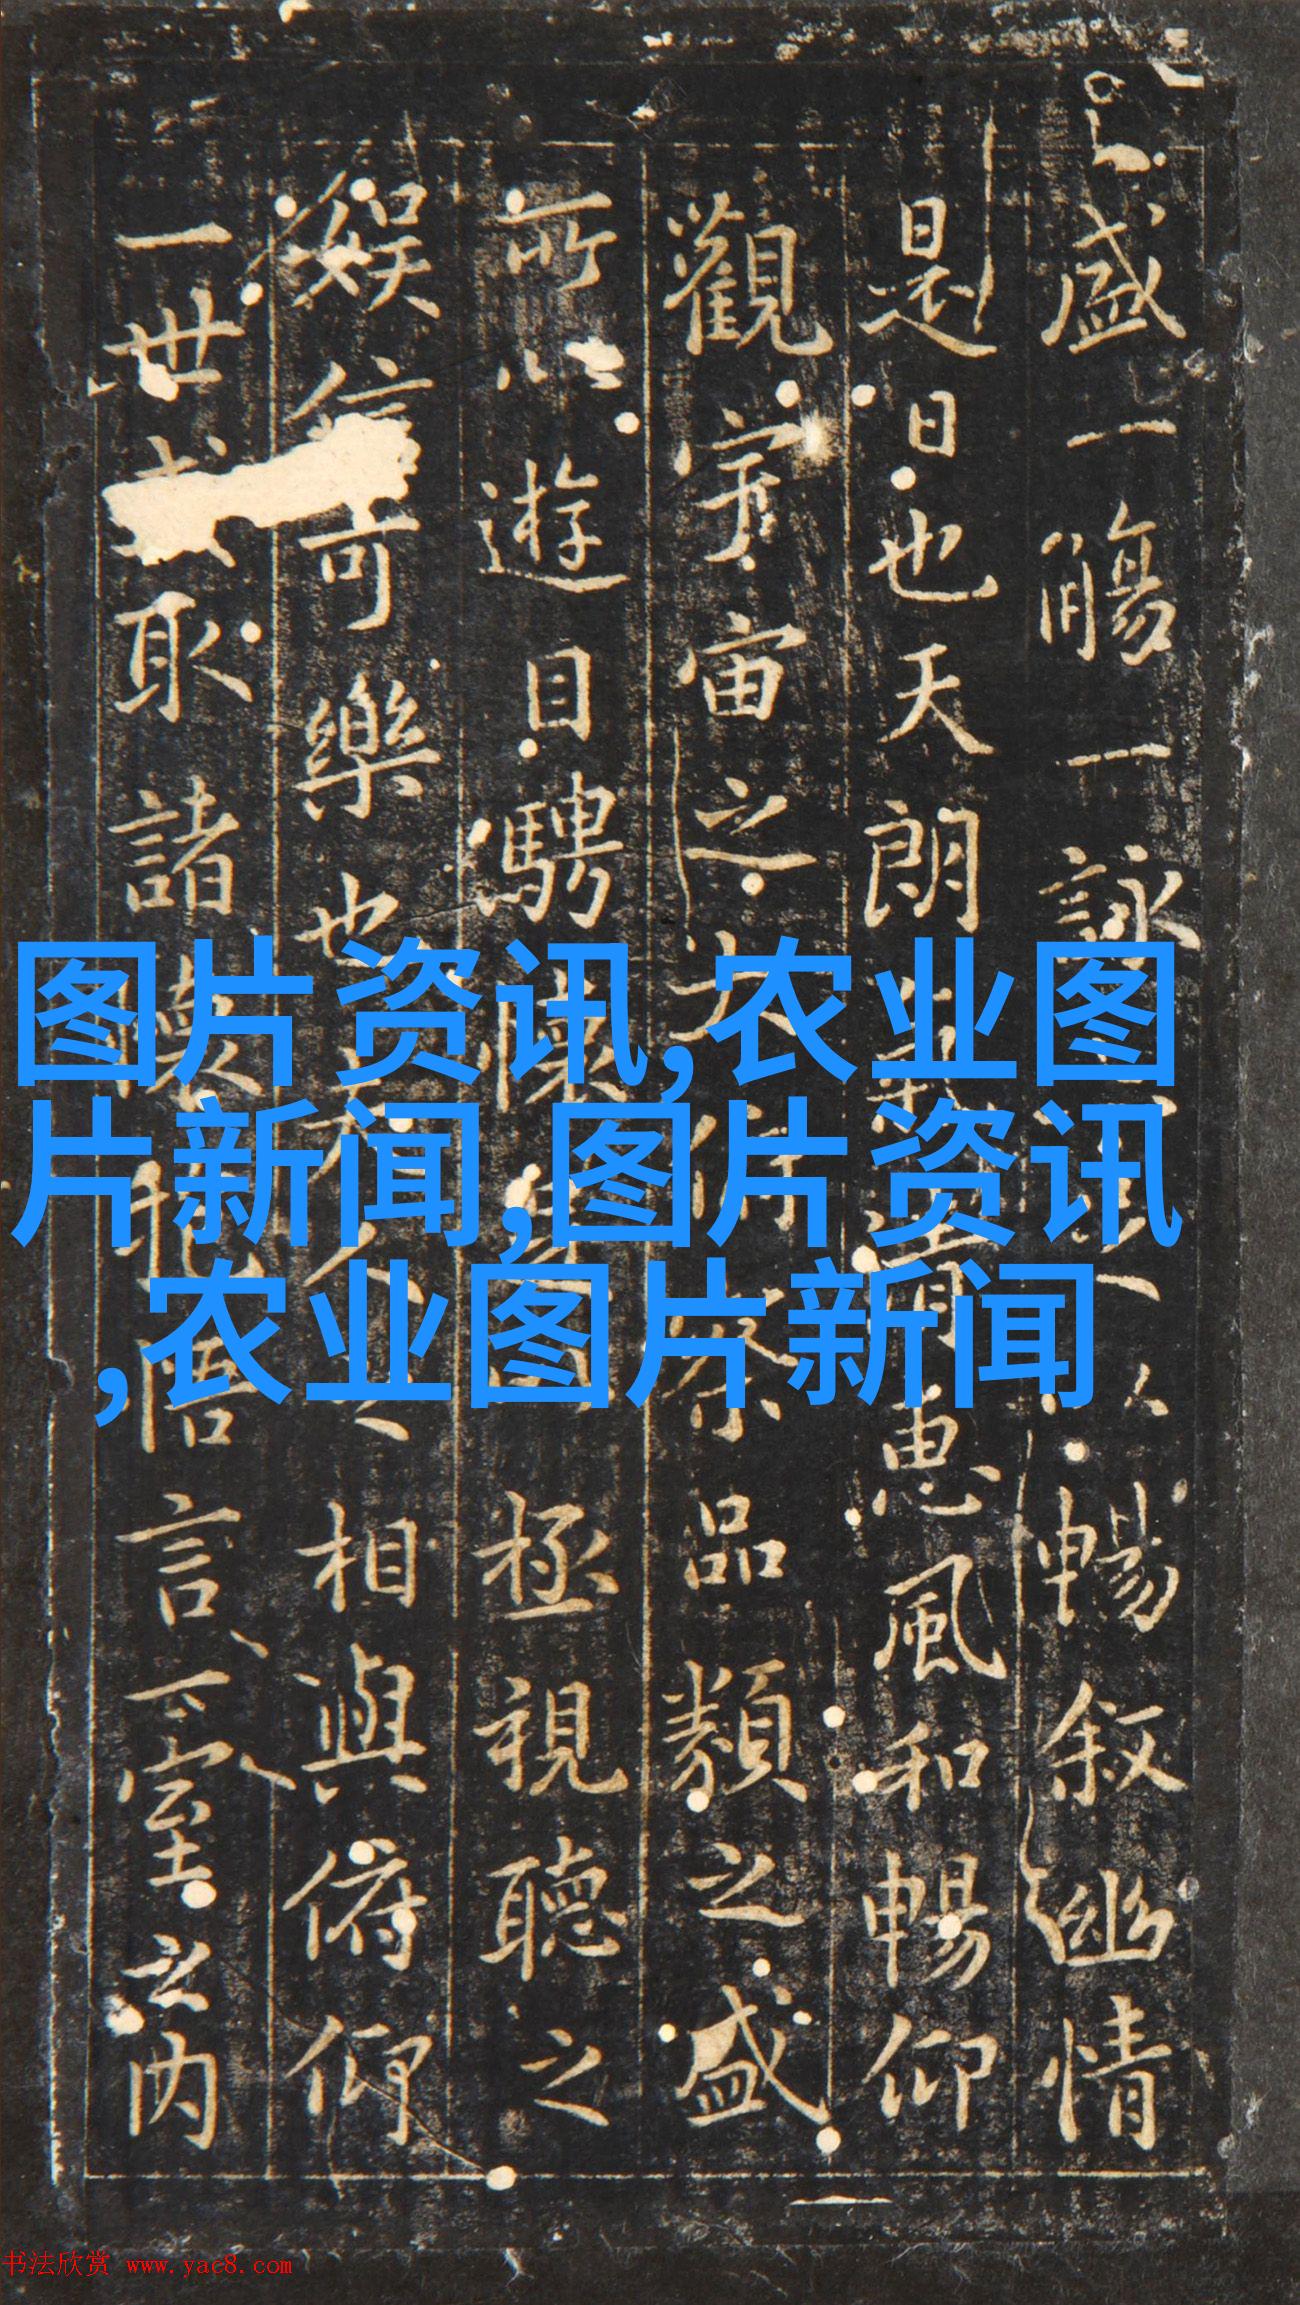 盛一觴一詠以暢叙幽情
是日也天朗惠風和暢仰
觀宇宙之大察品類之盛
所以遊目騁懷極視聽之
娛信可樂也人之相與俯仰
一世取諸懷悟言一室之內
图片资讯,农业图
片新闻,图片资讯
,农业图片新闻
书法欣赏 www.yac8.com